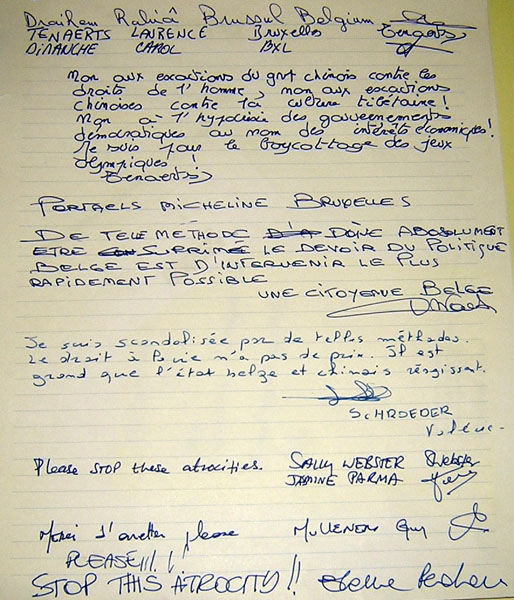 Draihem Rabiâ Brussel Belgium
TENAERTS LAURENCE Bruxelles Tenaerts
DIMANCHE CAROL BXL
Non aux exactions du gvt chinois contre les
droits de l'homme, non aux exactions
chinoises contre la culture tibétaine!
Non à l'hypocrisie des gouvernements
démocratiques au nom des intérêts économiques!
Je suis pour le boycottage des jeux
olympiques!
Tenaerts
PORTAELS MICHELINE BRUXELLES
DE TELE METHODE DONC ABOSLUMENT
ETRE SUPRIMÉE LE DEVOIR DU POLITIQUE
BELGE EST D'INTERVENIR LE PLUS
RAPIDEMENT POSSIBLE
UNE CITOYENNE BELGE
Je suis scandalisée par de telles méthodes.
Le droit à la vie n'a pas de prix. Il est
grand que l'état belge et chinois réagissent.
SCHROEDER
Please STOP these atrocities. SALLY WEBSTER Swebster
JASMINE PARMA
Merci d'arrêter please MULLENDERS Guy
PLEASE!!!!
STOP THIS ATROCITY!!